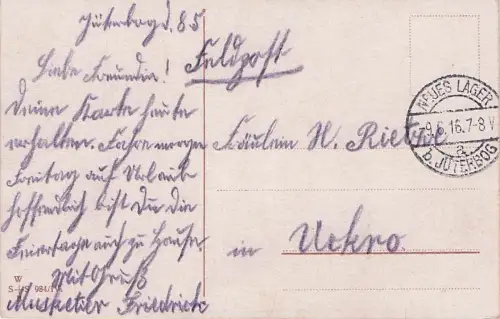 Jüterbog d. 8.5
Liebe Freundin!
Deine Karte heute
erhalten. Fahre morgen
Freitag auf Urlaub
hoffendlich bist Du die
Feiertage auch zu Hause.
Mit Gruß
Musketier Friedrich
Feldpost
Fräulein H.
in Uckro.
NEUES LAGER
9.6.16.7-8 V
a
b. JÜTERBOG
W